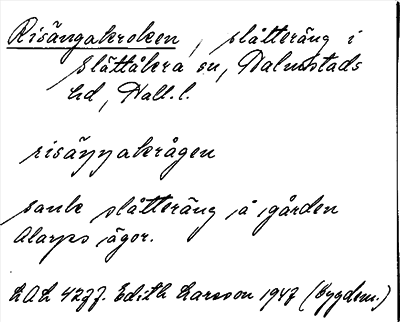 Risängakroken, slåtteräng i
Slättåkra sn, Halmstads
hd, Hall. l.
risäŋŋakrågen
sank slåtteräng på gården
Alarps ägor.
LAL 4277. Edith Larsson 1947 (bygdem.)